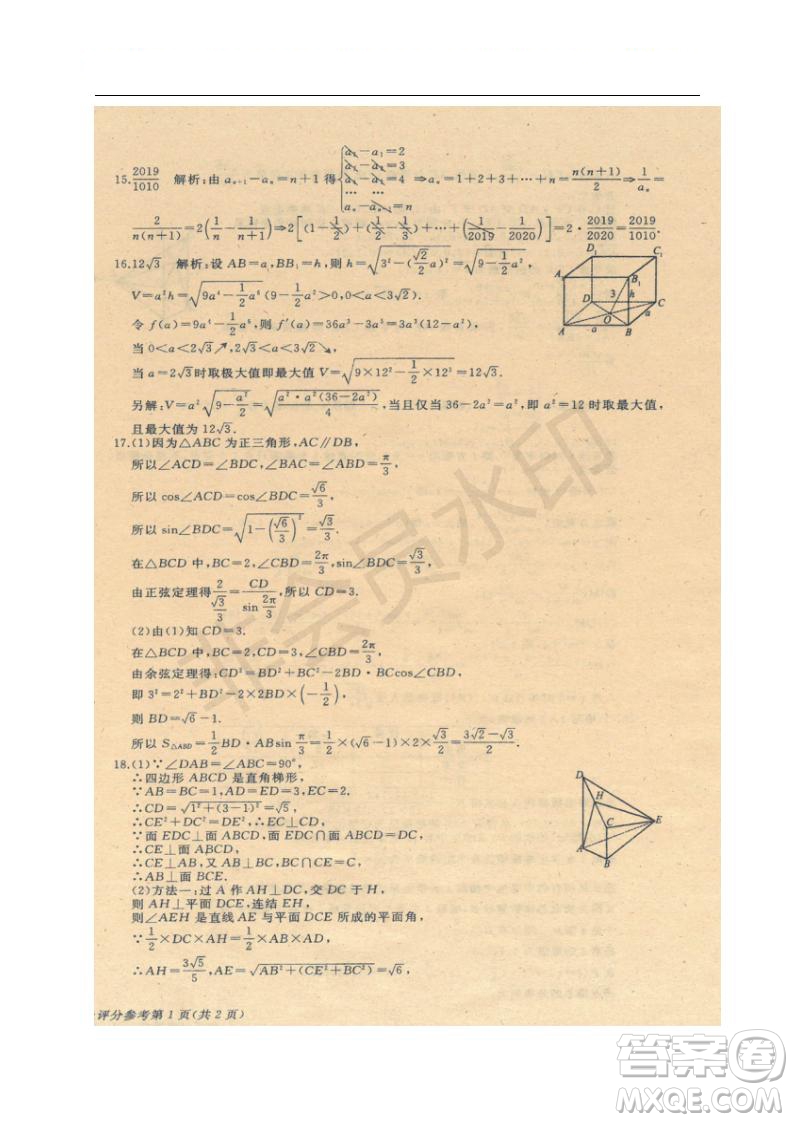 15. 2019/1010 解析:由 aₙ₊₁-aₙ=n+1 得{a₂-a₁=2 a₃-a₂=3 a₄-a₃=4 … … aₙ-aₙ₋₁=n ⇒aₙ=1+2+3+…+n=n(n+1)/2⇒1/aₙ=
2/n(n+1)=2(1/n-1/(n+1))⇒2[(1-1/2)+(1/2-1/3)+…+(1/2019-1/2020)]=2·2019/2020=2019/1010.
16.12√3 解析:设 AB=a,BB₁=h,则 h=√(3²-(√2/2 a)²)=√(9-1/2 a²),
V=a²h=√(9a⁴-1/2 a⁶)(9-1/2 a²>0,0<a<3√2).
令 f(a)=9a⁴-1/2 a⁶,则 f′(a)=36a³-3a⁵=3a³(12-a²),
当 0<a<2√3↗,2√3<a<3√2↘,
当 a=2√3时取极大值即最大值 V=√(9×12²-1/2×12³)=12√3.
另解:V=a²√(9-a²/2)=√(a²·a²(36-2a²)/4),当且仅当 36-2a²=a²,即 a²=12 时取最大值,
且最大值为 12√3.
D₁ C₁ A₁ B₁ 3 h D C O a A a B
17.(1)因为△ABC 为正三角形,AC∥DB,
所以∠ACD=∠BDC,∠BAC=∠ABD=π/3,
所以 cos∠ACD=cos∠BDC=√6/3,
所以 sin∠BDC=√(1-(√6/3)²)=√3/3.
在△BCD 中,BC=2,∠CBD=2π/3,sin∠BDC=√3/3,
由正弦定理得 2/(√3/3)=CD/sin 2π/3,所以 CD=3.
(2)由(1)知 CD=3.
在△BCD 中,BC=2,CD=3,∠CBD=2π/3,
由余弦定理得:CD²=BD²+BC²-2BD·BCcos∠CBD,
即 3²=2²+BD²-2×2BD×(-1/2),
则 BD=√6-1.
所以 S△ABD=1/2 BD·ABsin π/3=1/2×(√6-1)×2×√3/2=(3√2-√3)/2.
18.(1)∵∠DAB=∠ABC=90°,
∴四边形 ABCD 是直角梯形,
∵AB=BC=1,AD=ED=3,EC=2.
∴CD=√(1²+(3-1)²)=√5,
∴CE²+DC²=DE²,∴EC⊥CD,
∵面 EDC⊥面 ABCD,面 EDC∩面 ABCD=DC,
∴CE⊥面 ABCD,
∴CE⊥AB,又 AB⊥BC,BC∩CE=C,
∴AB⊥面 BCE.
(2)方法一:过 A 作 AH⊥DC,交 DC 于 H,
则 AH⊥平面 DCE,连结 EH,
则∠AEH 是直线 AE 与平面 DCE 所成的平面角,
∵1/2×DC×AH=1/2×AB×AD,
∴AH=3√5/5,AE=√(AB²+(CE²+BC²))=√6,
D H C E A B
评分参考第 1 页(共 2 页)
非会员水印
答案圈
MXQE.COM